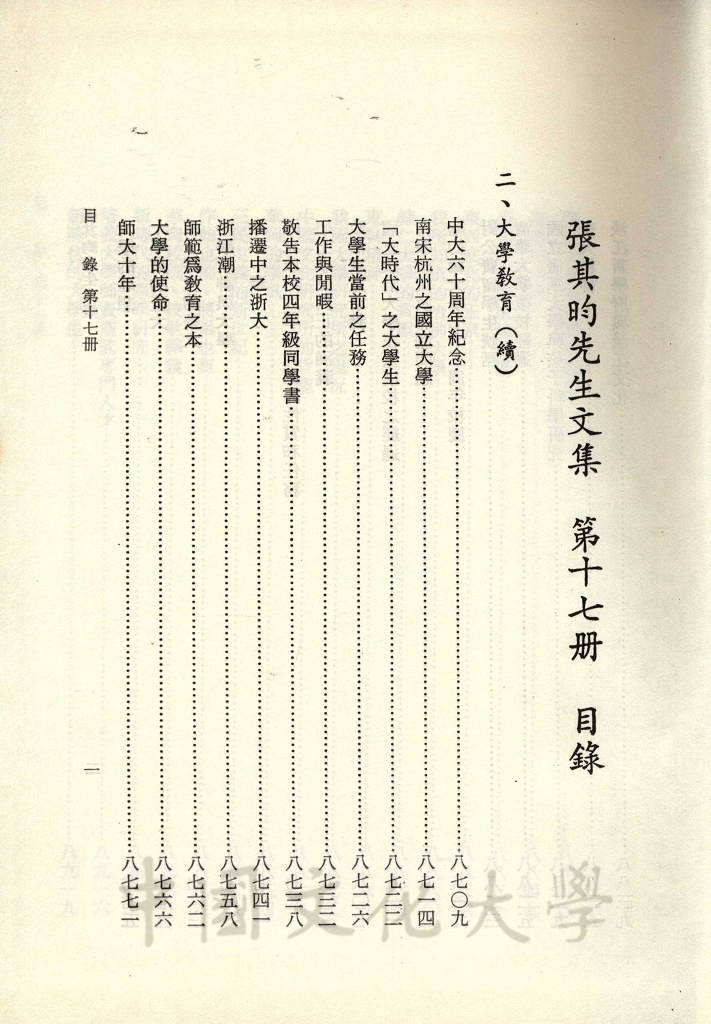 張其昀先生文集　第十七册　目錄
二、大學敎育（續）
中大六十周年紀念……八七〇九
南宋杭州之國立大學……八七一四
「大時代」之大學生……八七二二
大學生當前之任務……八七二六
工作與閒暇……八七三二
敬告本校四年級同學書……八七三八
播遷中之浙大……八七四一
浙江潮……八七五八
師範爲敎育之本……八七六二
大學的使命……八七六六
師大十年……八七七一
目　錄　第十七册
一
中國文化大學